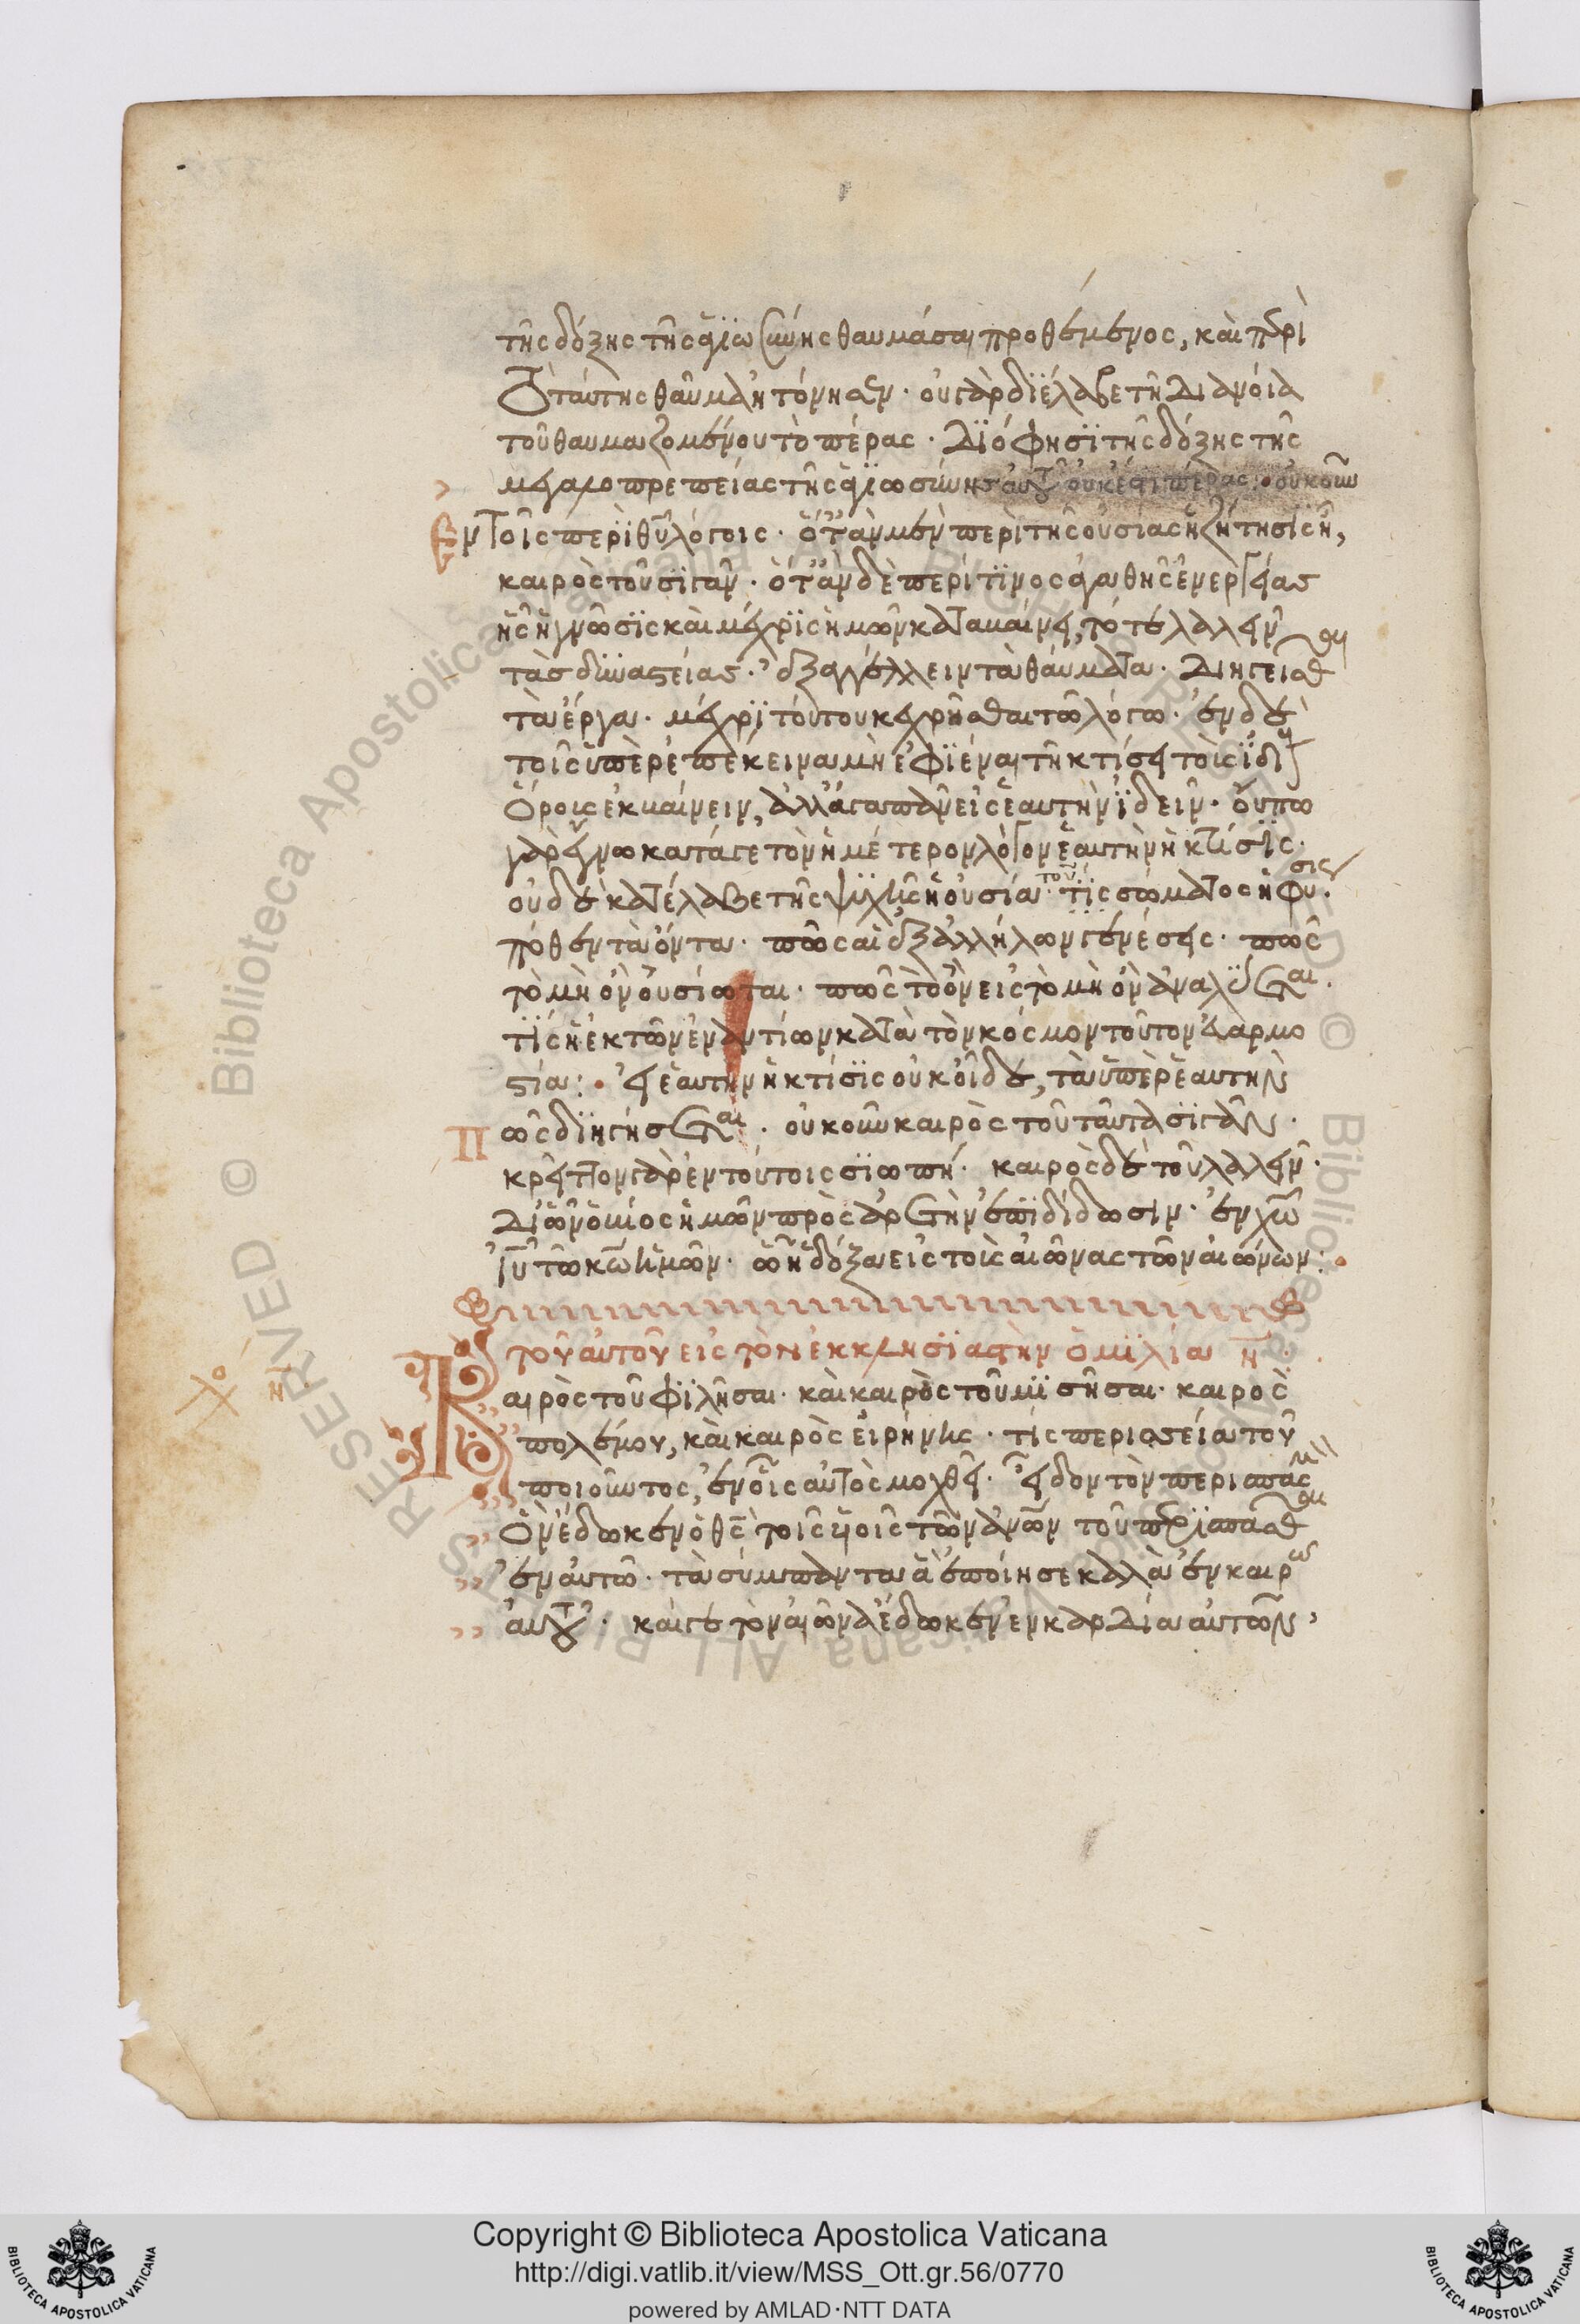 τῆς δόξης τῆς ἁγιωσύνης θαυμάσαι προθέμενος, καὶ περὶ
τὸ ταύτης θαῦμα ἠτόνησεν· οὐ γὰρ διέλαβε τῇ διανοία
τοῦ θαυμαζομένου τὸ πέρας· διό φησι τῆς δόξης τῆς
μεγαλοπρεπείας τῆς ἁγιωσύνης αὐτοῦ οὐκ ἔστι πέρας: οὐκοῦν
Ἐν τοῖς περὶ θυ λόγοις· ὅταν μὲν περὶ τῆς οὐσίας ἡ ζήτησις ἦ,
καιρὸς τοῦ σιγᾶν· ὅταν δὲ περί τινος ἀγαθῆς ἐνεργείας
ἧς ἡ γνῶσις καὶ μέχρις ἡμῶν καταβαίνει, τότε λαλεῖν
τὰς δυναστείας· ἐξαγγέλλειν τὰ θαύματα· διηγεῖσθαι
τὰ ἔργα· μέχρι τούτου κεχρῆσθαι τῶ λόγω· ἐν δὲ
τοῖς ὑπὲρ ἐπέκεινα μὴ ἐφιέναι τῆ κτίσει τοὺς ἰδίους
ὅρους ἐκβαίνειν, ἀλλ' ἀγαπᾶν εἰς ἑαυτὴν ἰδεῖν· οὔπω
γὰρ ἔγνω κατά γε τὸν ἡμέτερον λόγον ἑαυτὴν ἡ κτίσις·
οὐδὲ κατέλαβε τῆς ψυχῆς ἡ οὐσία· τίς τοῦ σώματος ἡ φύσις·
πόθεν τὰ ὄντα· πῶς αἱ ἐξ ἀλλήλων γενέσεις· πῶς
τὸ μὴ ὂν οὐσίωται· πῶς τὸ ὂν εἰς τὸ μὴ ὂν ἀναλύεται·
τίς ἡ ἐκ τῶν ἐναντίων κατὰ τὸν κόσμον τοῦτον ἁρμο
στία: εἰ ἑαυτὴν ἡ κτίσις οὐκ οἶδε, τὰ ὑπὲρ ἑαυτὴν
Πῶς διηγήσεται· οὐκοῦν καιρὸς τοῦ ταῦτα σιγᾶν·
κρεῖττον γὰρ ἐν τούτοις σιωπή· καιρὸς δὲ τοῦ λαλεῖν·
δι' ὧν ὁ βίος ἡμῶν πρὸς ἀρετὴν ἐπιδίδωσιν· ἐν χω
ιυ τῶ κω ἡμῶν· ὧ ἡ δόξα εἰς τοὺς αἰῶνας τῶν αἰώνων:
τοῦ αὐτοῦ εἰς τὸν ἐκκλησιαστὴν ὁμιλία η·
Καιρὸς τοῦ φιλῆσαι· καὶ καιρὸς τοῦ μισῆσαι· καιρὸς
πολέμου, καὶ καιρὸς εἰρήνης· τίς περισσεία τοῦ
ποιοῦντος, ἐν οἷς αὐτὸς μοχθεῖ· εἶδον τὸν περισπασμὸν
ὃν ἔδωκεν ὁ θς τοῖς υἱοῖς τῶν ανων τοῦ περισπᾶσθαι
ἐν αὐτῶ· τὰ σύμπαντα ἃ ἐποίησε καλὰ ἐν καιρῶ
αὐτοῦ· καί γε τὸν αἰῶνα ἔδωκεν ἐν καρδία αὐτῶν,
Copyright © Biblioteca Apostolica Vaticana
http://digi.vatlib.it/view/MSS_Ott.gr.56/0770
powered by AMLAD·NTT DATA